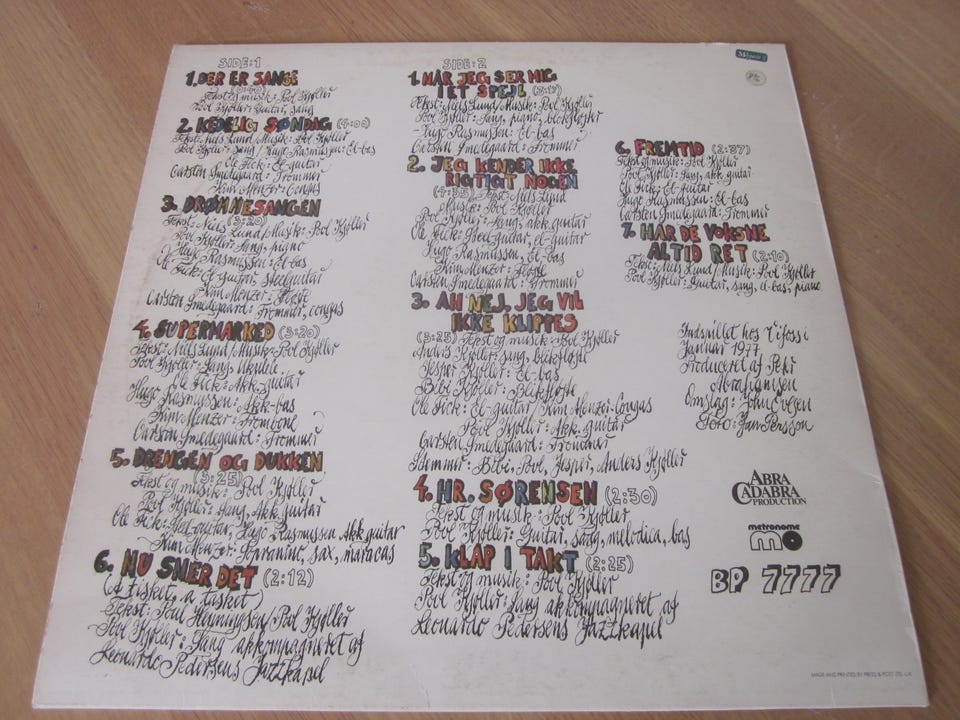 SIDE:1
1. DER ER SANGE
Tekst og musik: Povl Kjøller
Povl Kjøller: Guitar, sang
2. KEDELIG SØNDAG (4:00)
Tekst: Niels Lund/Musik: Povl Kjøller
Povl Kjøller: Sang/Hugo Rasmussen: El-bas
Ole Fick: El-guitar
Carsten Smedegaard: Trommer
Kim Menzer: Congas
3. DRØMMESANGEN
(3:20)
Tekst: Niels Lund/Musik: Povl Kjøller
Povl Kjøller: Sang, piano
Hugo Rasmussen: El-bas
Ole Fick: El-guitar, Steelguitar
Kim Menzer: Fløjte
Carsten Smedegaard: Trommer, congas
4. SUPERMARKED (3:20)
Tekst: Niels Lund/Musik: Povl Kjøller
Povl Kjøller: Sang, ukulele
Ole Fick: Akk. guitar
Hugo Rasmussen: Akk-bas
Kim Menzer: Trombone
Carsten Smedegaard: Trommer
5. DRENGEN OG DUKKEN
(3:25)
Tekst og musik: Povl Kjøller
Povl Kjøller: Sang, Akk. guitar
Ole Fick: Steel-guitar, Hugo Rasmussen Akk guitar
Kim Menzer: Sopranino, sax, maracas
6. NU SNER DET (2:12)
(A tisket, a tasket)
Tekst: Poul Henningsen/Povl Kjøller
Povl Kjøller: Sang akkompagneret af
Leonardo Pedersens Jazzkapel
SIDE:2
1. NÅR JEG SER MIG
I ET SPEJL
Tekst: Niels Lund/Musik: Povl Kjøller
Povl Kjøller: Sang, piano, blokfløjter
Hugo Rasmussen: El-bas
Carsten Smedegaard: Trommer
2. JEG KENDER IKKE
RIGTIGT NOGEN
Tekst: Niels Lund
Musik: Povl Kjøller
Povl Kjøller: Sang, akk. guitar
Ole Fick: Steel guitar, el-guitar
Hugo Rasmussen: El-bas
Kim Menzer: Fløjte
Carsten Smedegaard: Trommer
3. AH NEJ, JEG VIL
IKKE KLIPPES
(3:25) Tekst og musik: Povl Kjøller
Anders Kjøller: sang, blokfløjte
Jesper Kjøller: El-bas
Bibi Kjøller: Blokfløjte
Ole Fick: El-guitar/Kim Menzer: Congas
Povl Kjøller: Akk. guitar
Carsten Smedegaard: Trommer
Stemmer: Bibi, Povl, Jesper, Anders Kjøller
4. HR. SØRENSEN (2:30)
Tekst og musik: Povl Kjøller
Povl Kjøller: Guitar, sang, melodica, bas
5. KLAP I TAKT (2:25)
Tekst og musik: Povl Kjøller
Povl Kjøller: Sang akkompagneret af
Leonardo Pedersens Jazzkapel
6. FREMTID (2:37)
Tekst og musik: Povl Kjøller
Povl Kjøller: Sang, akk. guitar
Ole Fick: El-guitar
Hugo Rasmussen: El-bas
Carsten Smedegaard: Trommer
7. HAR DE VOKSNE
ALTID RET (2:10)
Tekst: Niels Lund/Musik: Povl Kjøller
Povl Kjøller: Guitar, sang, el-bas, piano
Indspillet hos Tifoss i
Januar 1977
Produceret af Peter
Abrahamsen
Omslag: John Ovesen
Foto: Jan Persson
ABRA
CADABRA
PRODUCTION
metronome
BP 7777
MADE AND PRINTED BY